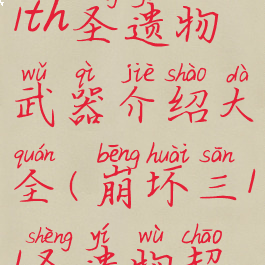 1th圣遗物
wǔ qì jiè shào dà
武器介绍大
quán bēng huài sān
全(崩坏三1
shèng yí wù chāo
圣遗物超